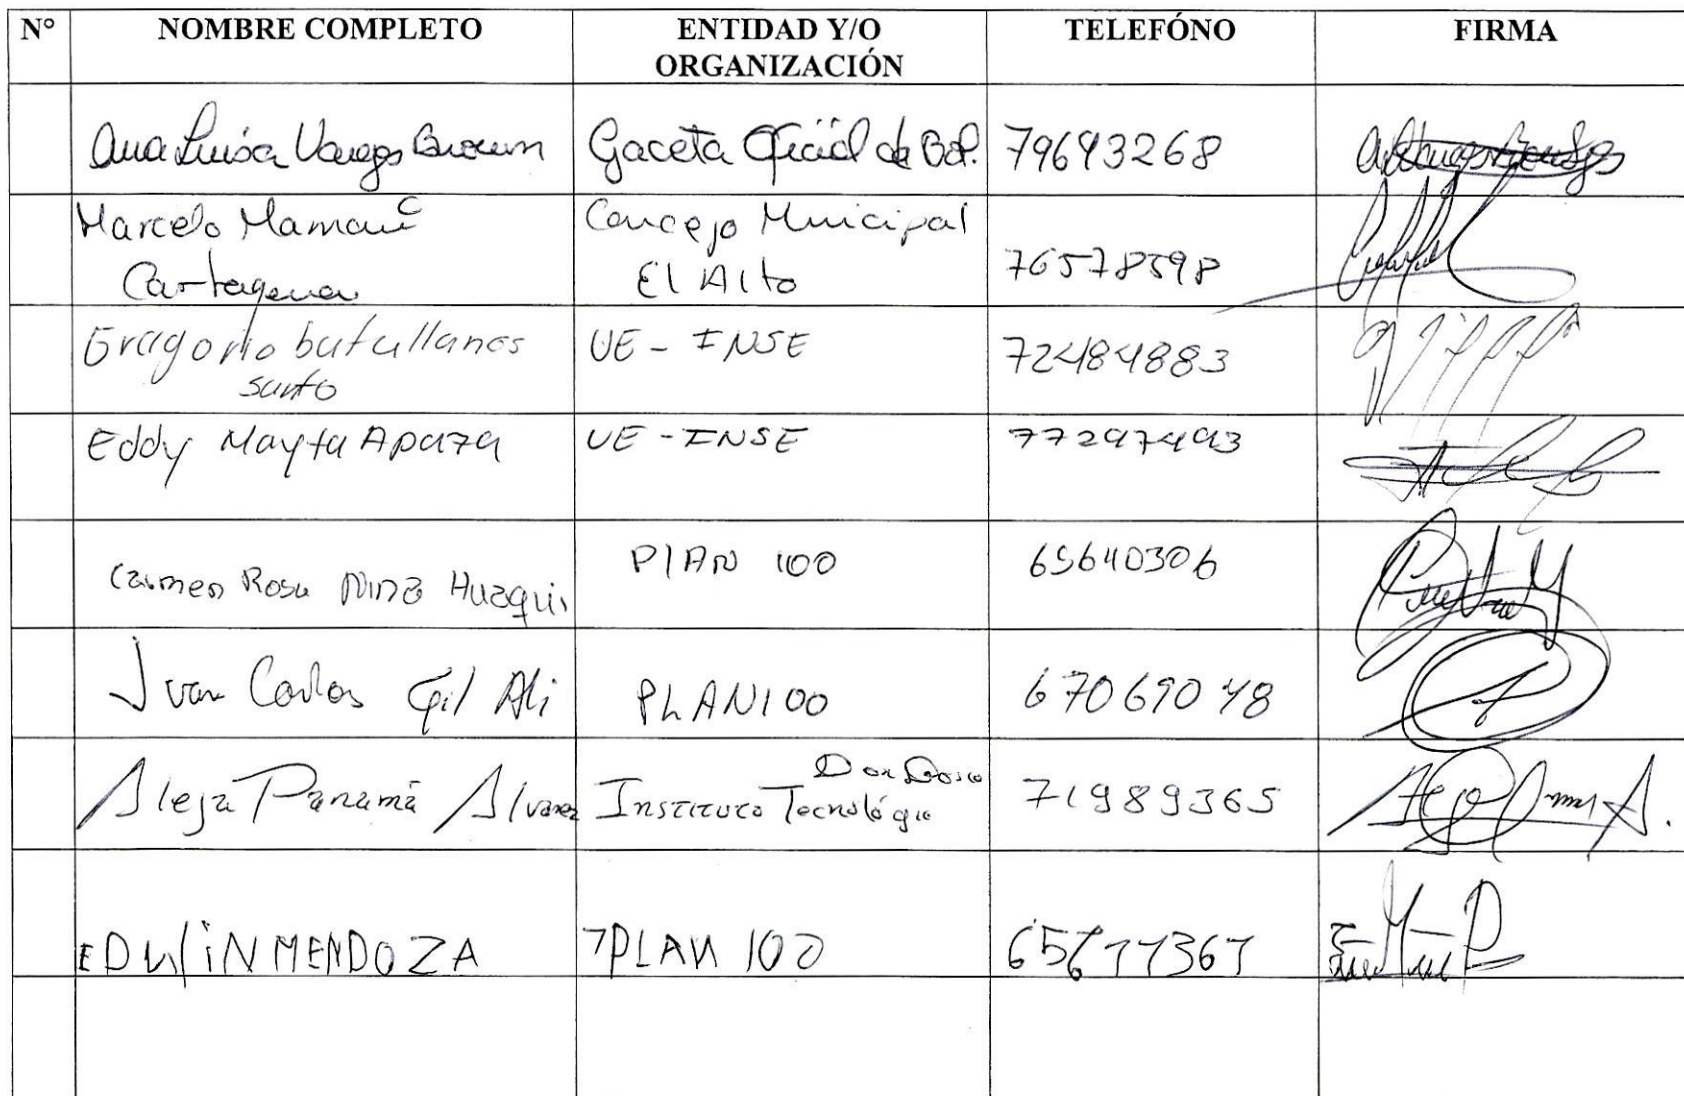 N° NOMBRE COMPLETO ENTIDAD Y/O ORGANIZACIÓN TELEFÓNO FIRMA
Ana Luisa Vargas Brown Gaceta Oficial de Bol. 79693268
Marcelo Mamani C Concejo Municipal
Cartagena El Alto 76578598
Gregorio butullanos UE - INSE 72484883
santo
Eddy Mayta Apaza UE - INSE 77297493
Carmen Rosa Nina Huaqui PLAN 100 65640306
Juan Carlos Gil Ali PLAN100 67069048
Don Bosco
Aleja Panamá Alvarez Instituto Tecnológico 71989365
EDWIN MENDOZA PLAN 100